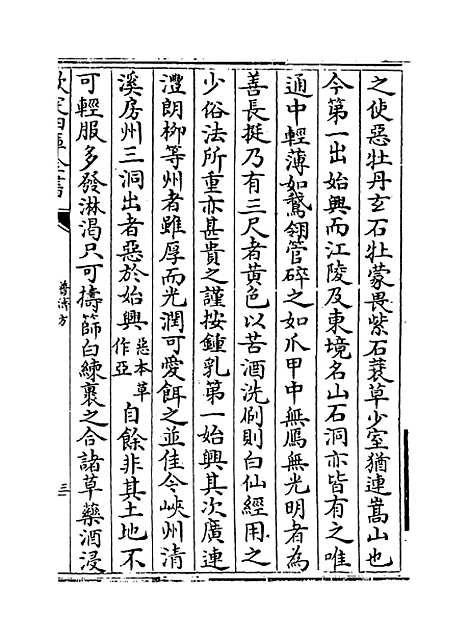 之使惡牡丹玄石牡蒙畏紫石蓑草少室猶連嵩山也
今第一出始興而江陵及東境名山石洞亦皆有之唯
通中輕薄如鵞翎管碎之如爪甲中無鴈無光明者為
善長挺乃有三尺者黄色以苦酒洗刷則白仙經用之
少俗法所重亦甚貴之謹按鍾乳第一始興其次廣連
澧朗柳等州者雖厚而光潤可愛餌之並佳今峽州清
溪房州三洞出者惡於始興惡本草作亞自餘非其土地不
可輕服多發淋渴只可擣篩白練裹之合諸草藥酒浸
欽定四庫全書
普濟方
三